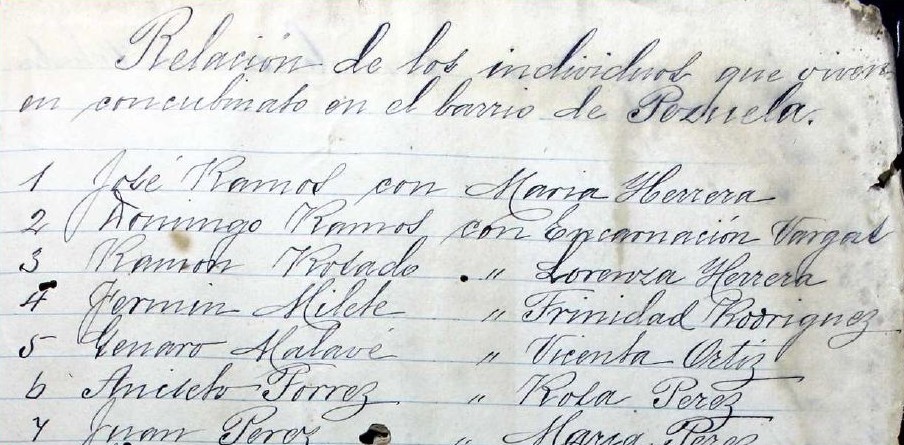 Relación de los individuos que viven
en concubinato en el barrio de Pozuela.
1 José Ramos con Maria Herrera
2 Domingo Ramos con Encarnación Vargas
3 Ramon Rosado . " Lorenza Herrera
4 Fermin Milete " Trinidad Rodriguez
5 Genaro Malavé " Vicenta Ortiz
6 Aniseto Torrez " Rosa Perez
7 Juan Perez " Maria Perez